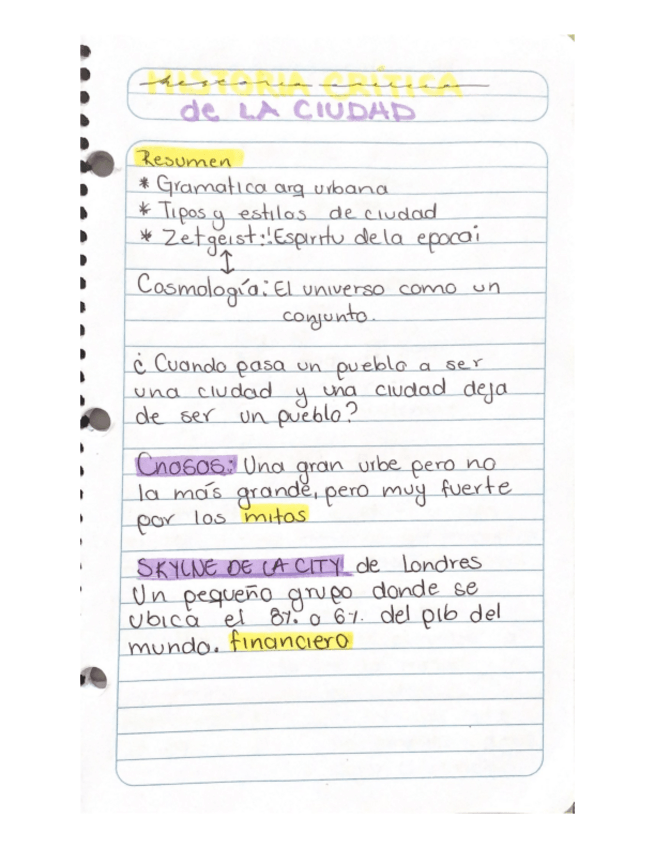 HISTORIA CRÍTICA
de LA CIUDAD
Resumen
* Gramatica arq urbana
* Tipos y estilos de ciudad
* Zetgeist: "Espiritu de la epoca"
↕
Cosmología: El universo como un
conjunto.
¿Cuando pasa un pueblo a ser
una ciudad y una ciudad deja
de ser un pueblo?
Cnosos: Una gran urbe pero no
la más grande, pero muy fuerte
por los mitos
SKYLNE DE LA CITY de Londres
Un pequeño grupo donde se
ubica el 8% o 6% del pib del
mundo. financiero